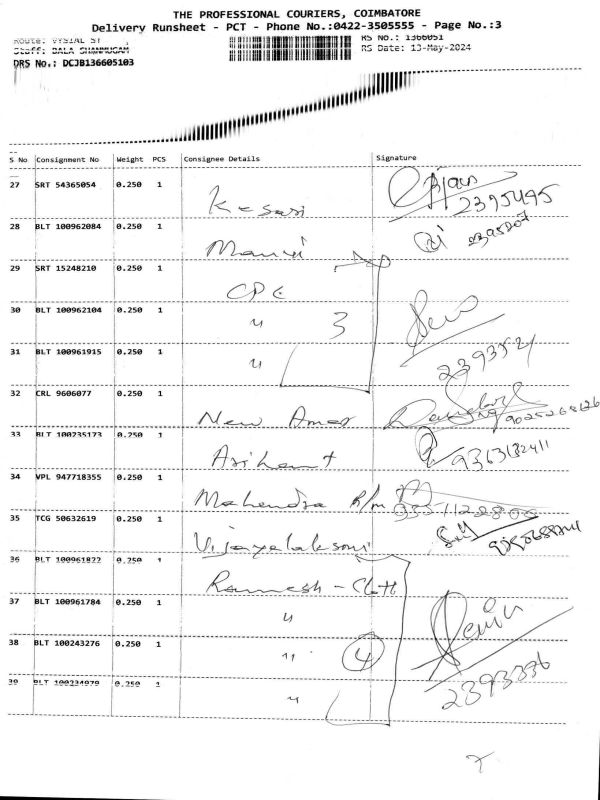 THE PROFESSIONAL COURIERS, COIMBATORE
Delivery Runsheet - PCT - Phone No.:0422-3505555 - Page No.:3
Route: VYSIAL ST
RS No.: 1366051
Staff: BALA SHANMUGAM
RS Date: 13-May-2024
DRS No.: DCJB136605103
S No Consignment No Weight PCS Consignee Details Signature
27 SRT 54365054 0.250 1 Kesari
2395495
28 BLT 100962084 0.250 1
29 SRT 15248210 0.250 1 CPC
30 BLT 100962104 0.250 1 " 3
31 BLT 100961915 0.250 1 "
32 CRL 9606077 0.250 1 New Amar
33 BLT 100235173 0.250 1 Arihant
34 VPL 947718355 0.250 1 Mahendra R/m
35 TCG 50632619 0.250 1 Vijayalaksmi
36 BLT 100961822 0.250 1 Ramesh - Cloth
37 BLT 100961784 0.250 1 "
38 BLT 100243276 0.250 1 " 4
39 BLT 100234979 0.250 1 "
2393336